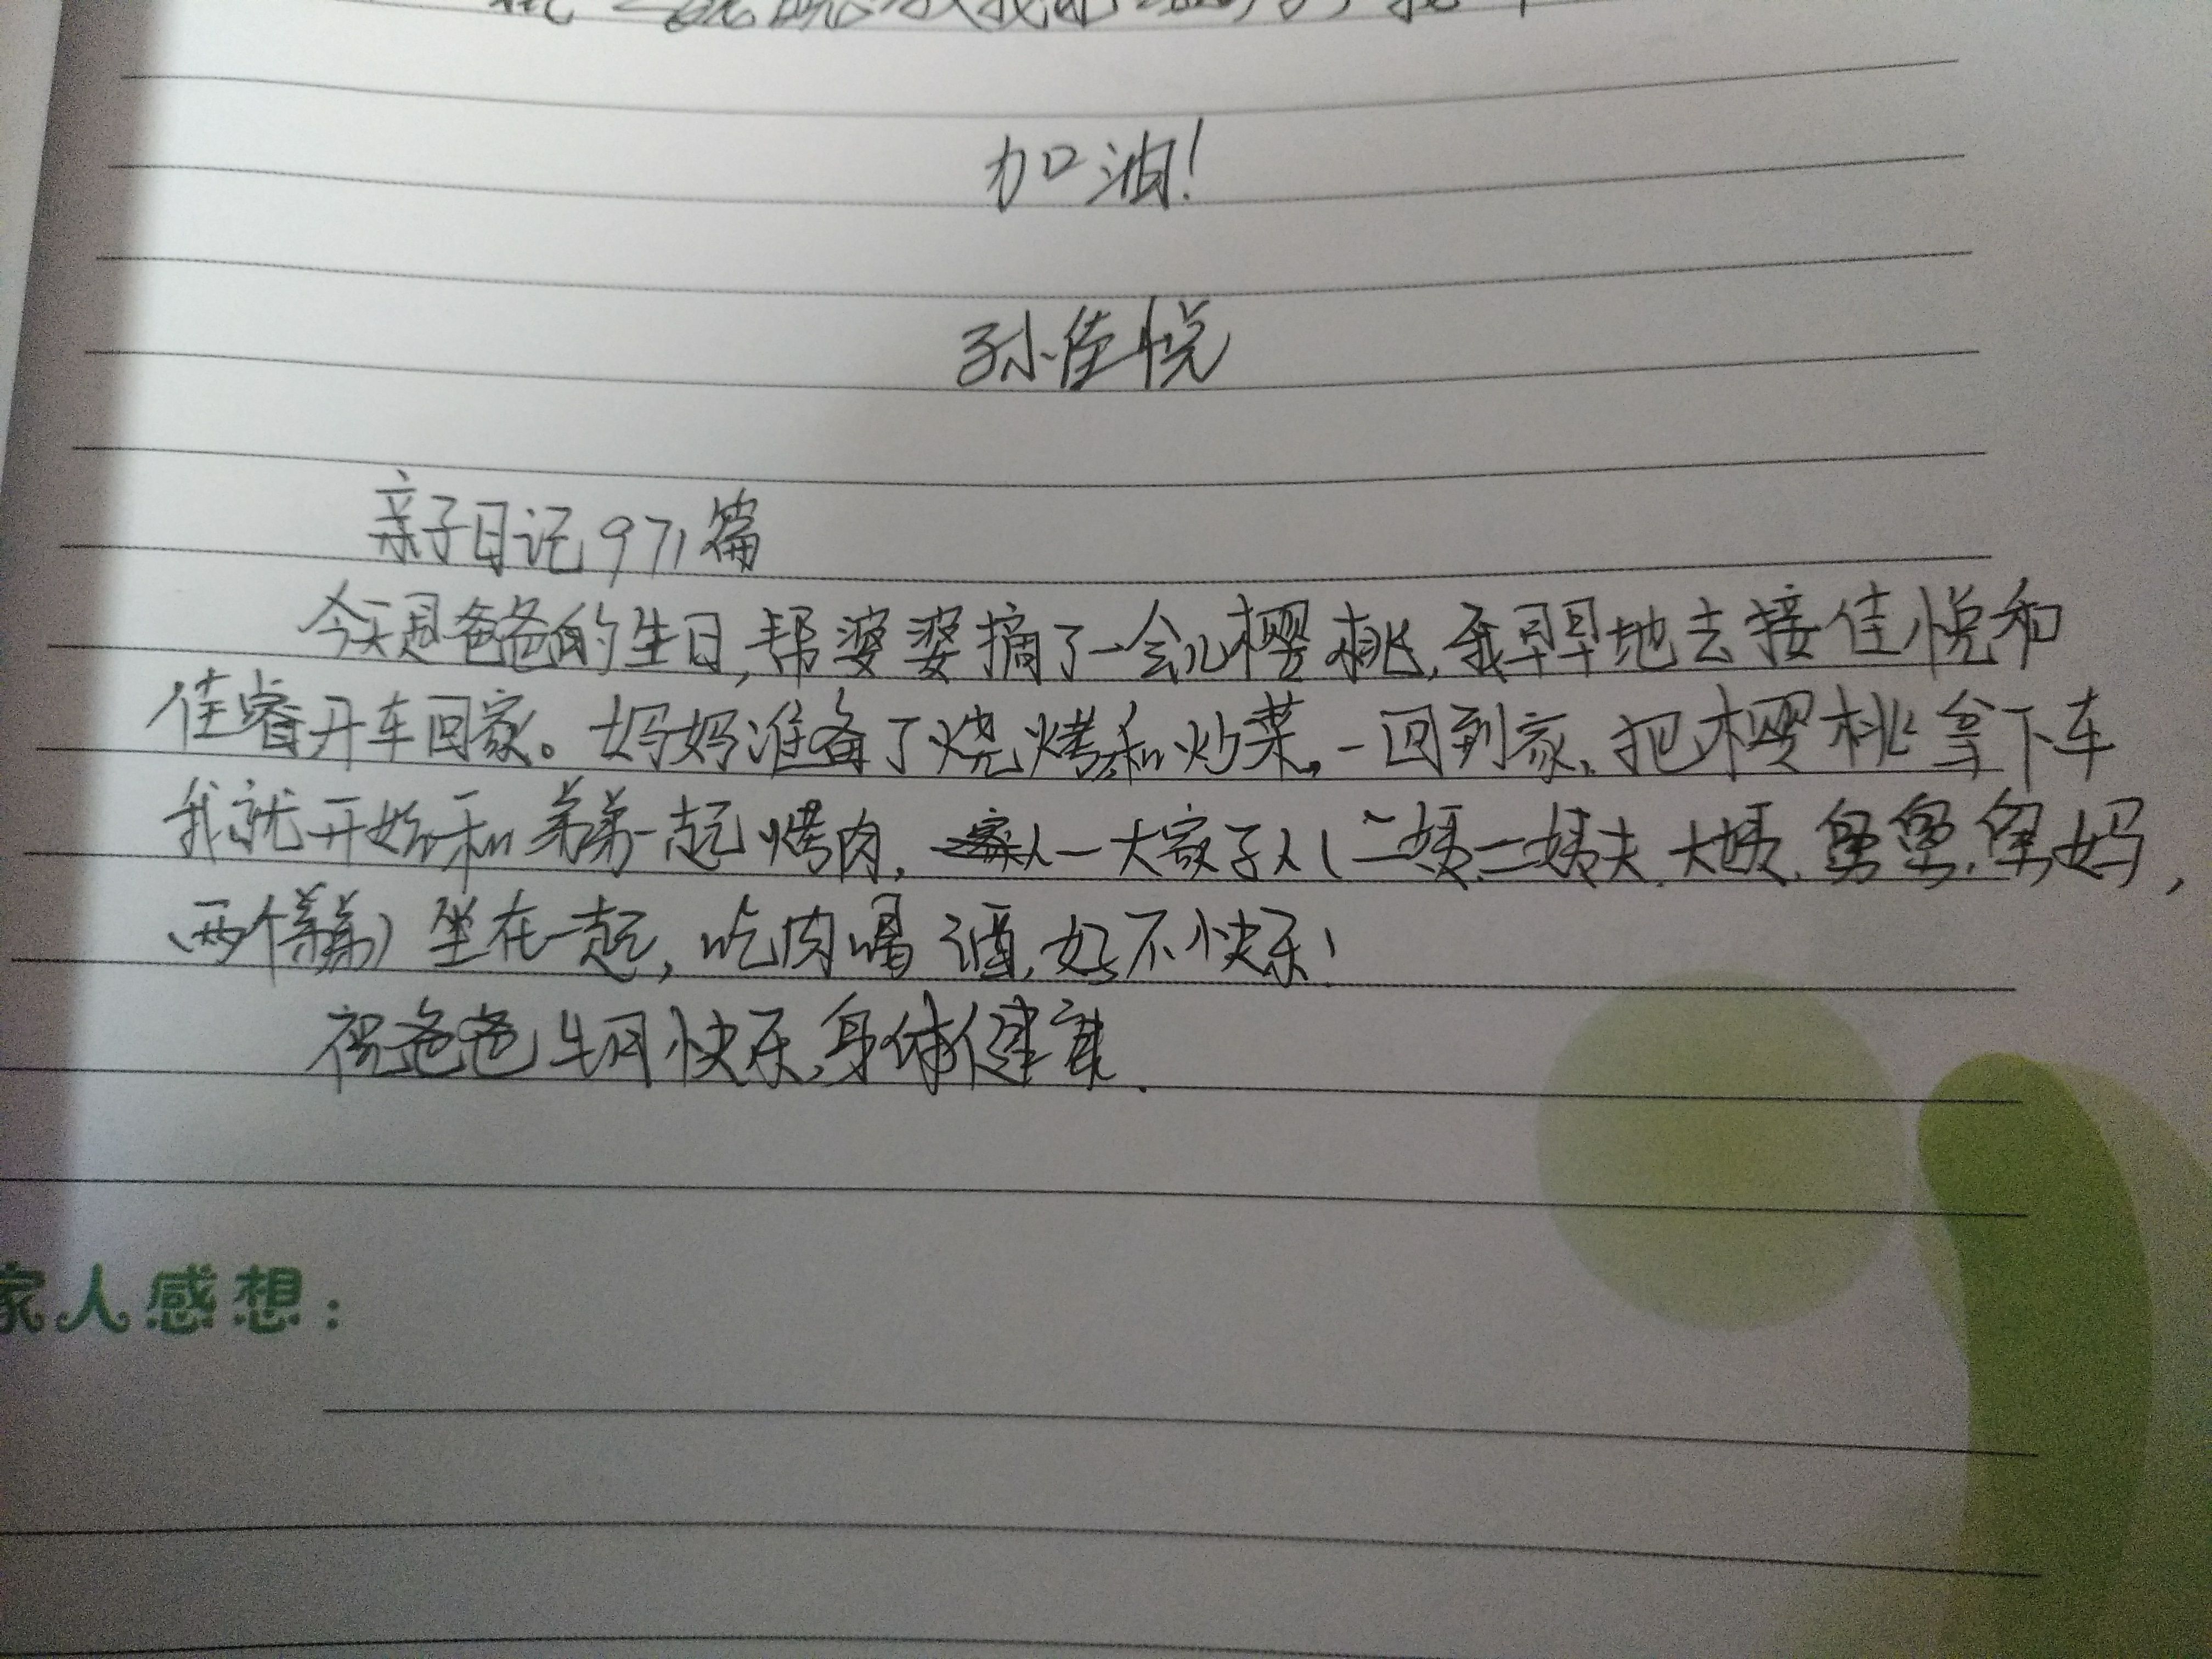 加油!
孙佳悦
亲子日记971篇
今天是爸爸的生日,帮婆婆摘了一会儿樱桃,我早早地去接佳悦和
佳睿开车回家。妈妈准备了烧烤和炒菜,一回到家,把樱桃拿下车
我就开始和弟弟一起烤肉,一大家子人(二姨、二姨夫、大姨、舅舅、舅妈,
两个弟弟)坐在一起,吃肉喝酒,好不快乐!
祝爸爸生日快乐,身体健康.
家人感想: